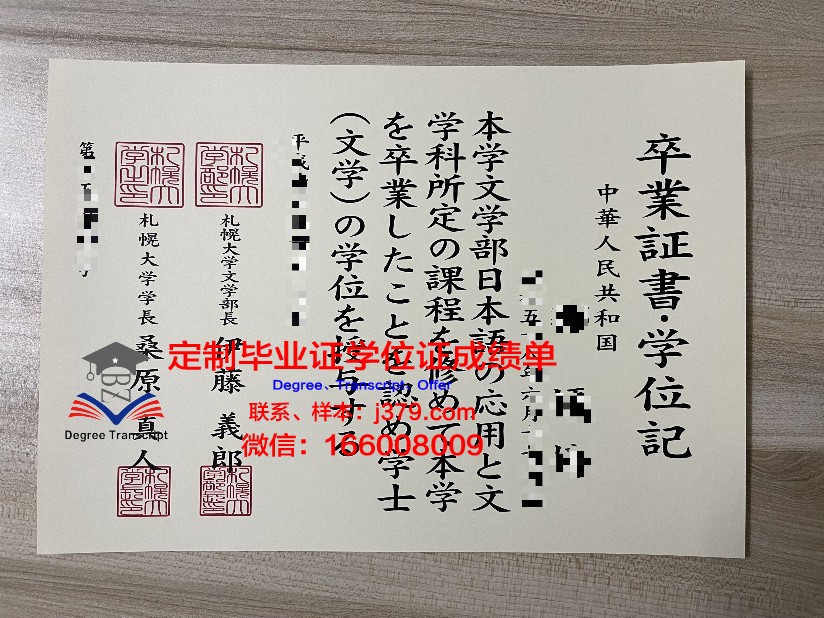 卒業証書・学位記
中華人民共和国
本学文学部日本語の応用と文
学科所定の課程を修めて本学
を卒業したことを認め学士
(文学)の学位を授与する
札幌大学文学部長 伊藤 義郎
札幌大学学長 桑原 真人
定制毕业证学位证成绩单
Degree、Transcript、Offer
联系、样本：j379.com
微信：166008009
Degree Transcript